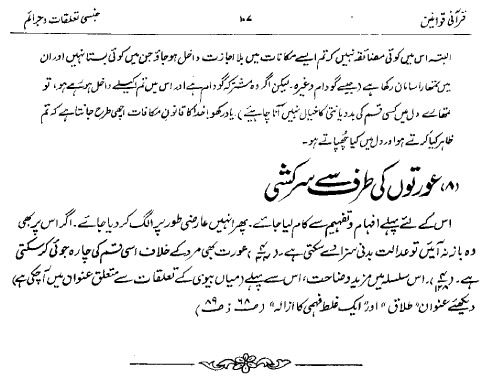 قرآنی قوانین ۱۰۷ جنسی تعلقات و جرائم
البتہ اس میں کوئی مضائقہ نہیں کہ تم ایسے مکانات میں بلا اجازت داخل ہو جاؤ جن میں کوئی بستا نہیں اور ان
میں تمہارا سامان رکھا ہے (جیسے گودام وغیرہ۔ لیکن اگر وہ مشترکہ گودام ہے اور اس میں تم اکیلے داخل ہوئے ہو، تو
تمہارے دل میں کسی قسم کی بددیانتی کا خیال نہیں آنا چاہیئے) ۔ یاد رکھو! خدا کا قانونِ مکافات اچھی طرح جانتا ہے کہ تم
ظاہر کیا کرتے ہو اور دل میں کیا چھپاتے ہو۔
(۸) عورتوں کی طرف سے سرکشی
اس کے لئے پہلے افہام و تفہیم سے کام لیا جائے۔ پھر انہیں عارضی طور پر الگ کر دیا جائے۔ اگر اس پر بھی
وہ باز نہ آئیں تو عدالت بدنی سزا دے سکتی ہے۔ عورت بھی مرد کے خلاف اسی قسم کی چارہ جوئی کر سکتی
ہے۔ اس سلسلہ میں مزید وضاحت، اس سے پہلے (میاں بیوی کے تعلقات سے متعلق عنوان میں آ چکی ہے)
دیکھئے عنوان "طلاق" اور "ایک غلط فہمی کا ازالہ" (ص ۶۸ ؛ ص ۸۹)